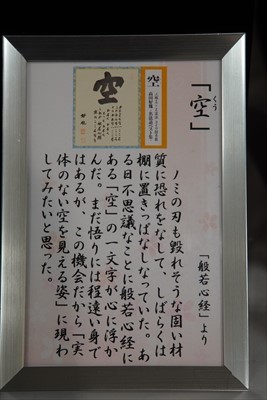 「空」
くう
「般若心経」より
ノミの刃も毀れそうな固い材
質に恐れをなして、しばらくは
棚に置きっぱなしなっていた。あ
る日不思議なことに般若心経に
ある「空」の一文字が心に浮か
んだ。まだ悟りには程遠い身で
はあるが、この機会だから「実
体のない空を見える姿」に現わ
してみたいと思った。
空
空